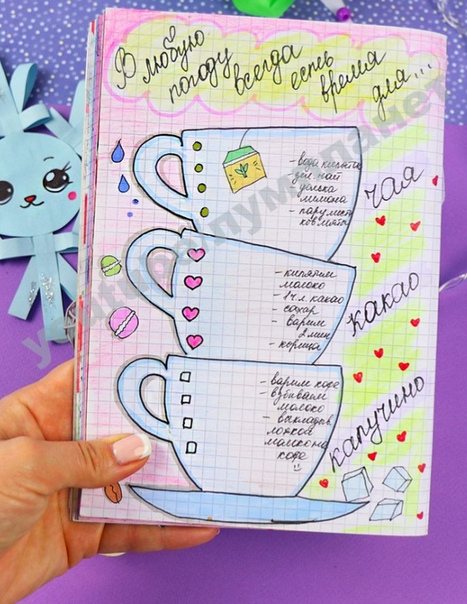 В любую
погоду
всегда
есть
время
для...
- вода кипяток
чай
долька
лимона
- пару листков мяты
чая
- кипятим
молоко
- 1 ч.л какао
- сахар
- варим
2 мин
- корица
какао
- варим кофе
- взбиваем
молоко
- выкладыв.
молоко на
кофе
капучино